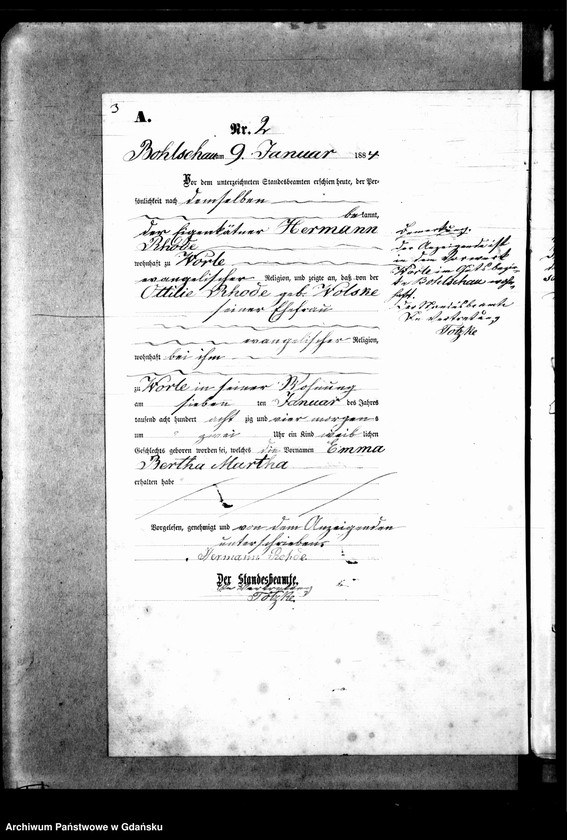 3
A.
Nr. 2
Bohlschau am 9. Januar 1884
Vor dem unterzeichneten Standesbeamten erschien heute, der Per-
sönlichkeit nach demselben
bekannt,
der Eigenkätner Hermann
Rhode
wohnhaft zu Worle
evangelischer Religion, und zeigte an, daß von der
Ottilie Rhode geb. Wolske
seiner Ehefrau
evangelischer Religion,
wohnhaft bei ihm
zu Worle in seiner Wohnung
am sieben ten Januar des Jahres
tausend acht hundert acht zig und vier morgens
um zwei Uhr ein Kind weib lichen
Geschlechts geboren worden sei, welches die Vornamen Emma
Bertha Martha
erhalten habe
Vorgelesen, genehmigt und von dem Anzeigenden
unterschrieben
Hermann Rohde
Der Standesbeamte.
In Vertretung
Totzke
Bemerkung.
Der Anzeigende ist
in dem Vorwerk
Worle im Gutsbezir-
ke Bohlschau wohn-
haft.
Der Standesbeamte
In Vertretung
Totzke
Archiwum Państwowe w Gdańsku